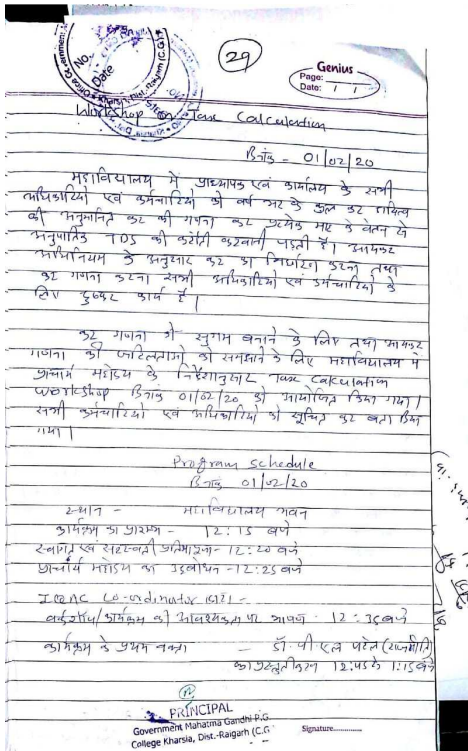 29
Genius
Page:
Date: / /
No.
Date
Kharsia, Dist.-Raigarh (C.G.)
Workshop on Tax Calculation
दिनांक - 01/02/20
महाविद्यालय में प्राध्यापक एवं कार्यालय के सभी
अधिकारियों एवं कर्मचारियों को वर्ष भर के कुल कर दायित्व
की अनुमानित कर की गणना कर प्रत्येक माह के वेतन से
अनुपातिक TDS की कटौती करवानी पड़ती है। आयकर
अधिनियम के अनुसार कर का निर्धारण करना तथा
कर गणना करना सभी अधिकारियों एवं कर्मचारियों के
लिए दुष्कर कार्य है।
कर गणना को सुगम बनाने के लिए तथा आयकर
गणना की जटिलताओं को समझाने के लिए महाविद्यालय में
प्राचार्य महोदय के निर्देशानुसार Tax Calculation
Workshop दिनांक 01/02/20 को आयोजित किया गया।
सभी कर्मचारियों एवं अधिकारियों को सूचित कर बता दिया
गया।
Program Schedule
दिनांक 01/02/20
स्थान - महाविद्यालय भवन
कार्यक्रम का प्रारम्भ - 12:15 बजे
स्वागत एवं सरस्वती - 12:20 बजे
प्राचार्य महोदय का उद्बोधन - 12:25 बजे
IQAC Co-ordinator द्वारा -
वर्कशॉप/कार्यक्रम की आवश्यकता पर भाषण - 12:35 बजे
कार्यक्रम के प्रथम वक्ता - डॉ. पी. एल. पटेल (राजनीति)
का प्रस्तुतीकरण 12:45 से 1:15 बजे
PRINCIPAL
Government Mahatma Gandhi P.G
College Kharsia, Dist.-Raigarh (C.G
Signature..............